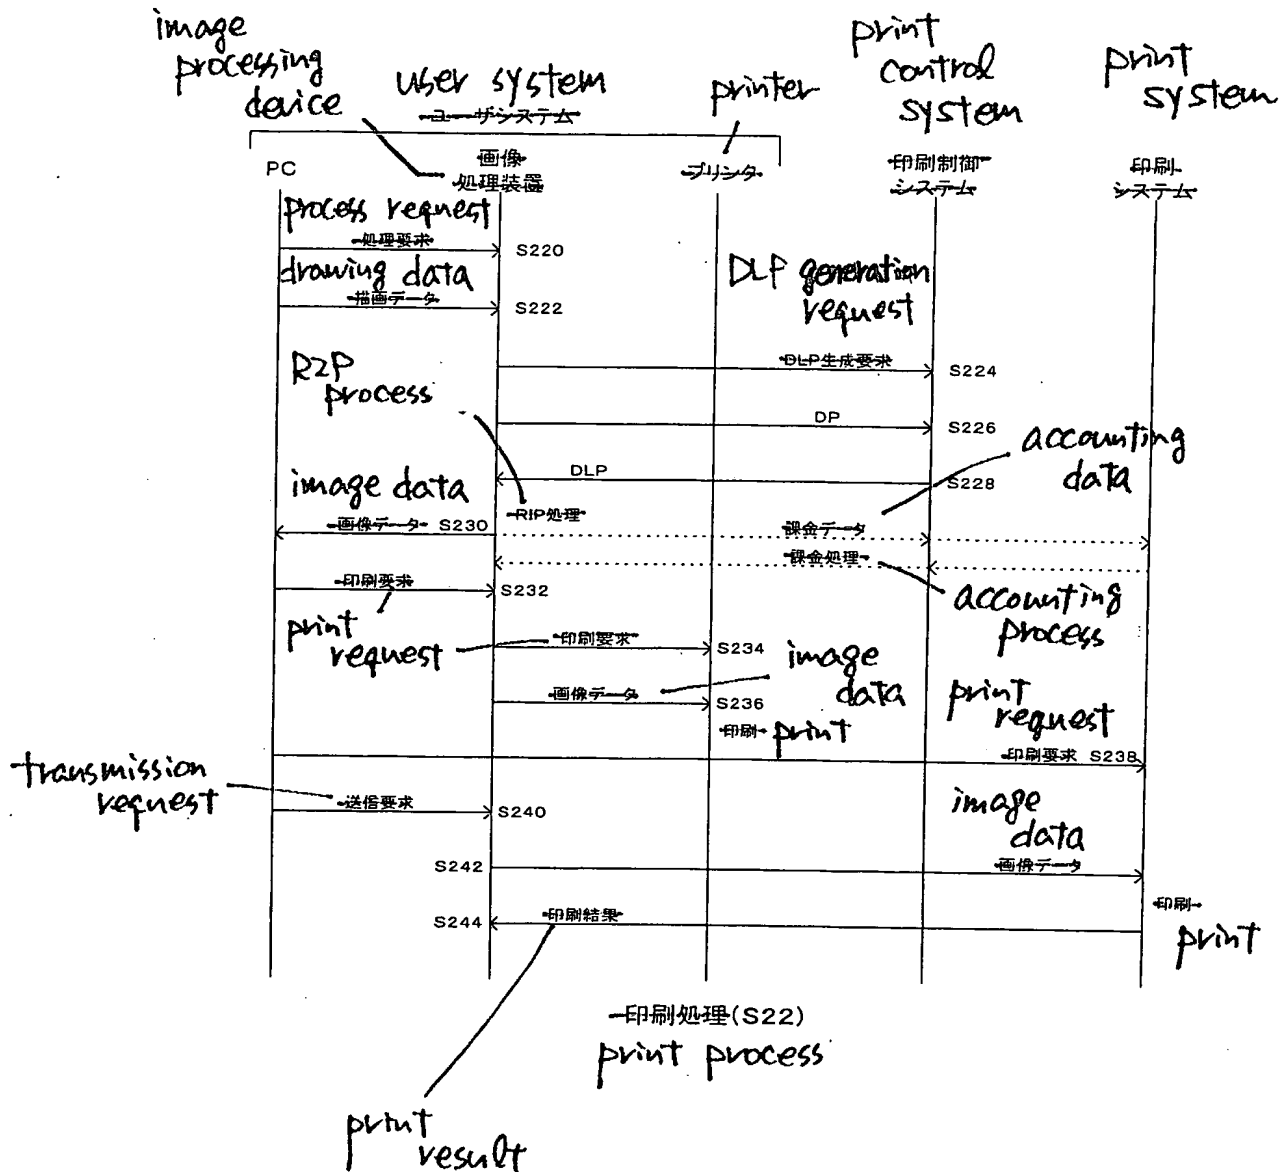 image
processing
device
user system
ユーザシステム
printer
print
control
system
print
system
PC
画像
処理装置
プリンタ
印刷制御
システム
印刷
システム
process request
処理要求
S220
drawing data
描画データ
S222
DLP generation
request
DLP生成要求
S224
R2P
process
DP
S226
accounting
data
DLP
S228
image data
RIP処理
画像データ S230
課金データ
課金処理
印刷要求
S232
accounting
process
print
request
印刷要求
S234
image
data
画像データ
S236
印刷
print
print
request
印刷要求 S238
transmission
request
送信要求
S240
image
data
S242
画像データ
印刷
S244
印刷結果
print
印刷処理(S22)
print process
print
result